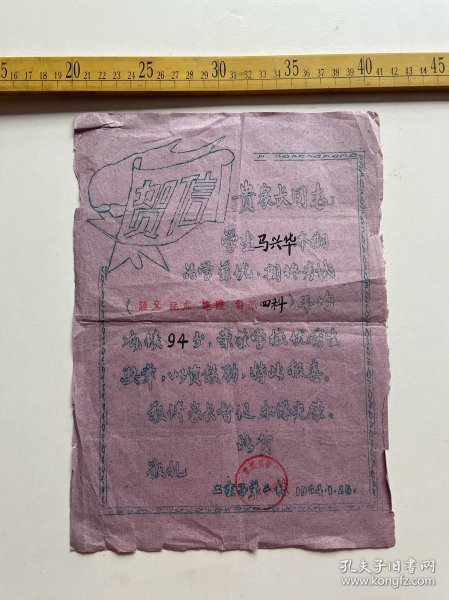 5 16 17 18 19 20 21 22 23 24 25 26 27 28 29 30 31 32 33 34 35 36 37 38 39 40 41 42 43 44 45
贺信
贵家长同志：
学生马兴华本期
品学兼优，期终考试
（語文 地理 自然四科）平均
成绩94分，
奖群，以资鼓励，特此报喜。
敬请家长督促永保光荣。
此贺
敬礼
1964.1.26.
孔夫子旧书网
www.kongfz.com